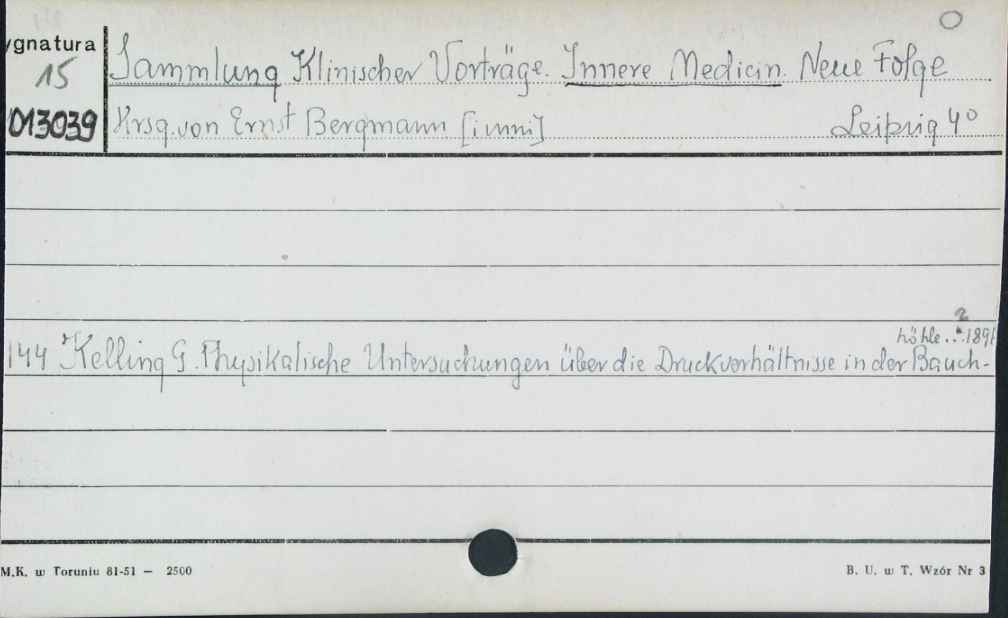 ygnatura
15
013039
Sammlung Klinischer Vorträge. Innere Medicin. Neue Folge
Hrsg. von Ernst Bergmann [i inni] Leipzig 4°
144 Kelling G. Physikalische Untersuchungen über die Druckverhältnisse in der Bauch-
höhle... 1891
2
M.K. w Toruniu 81-51 — 2500
B. U. w T. Wzór Nr 3